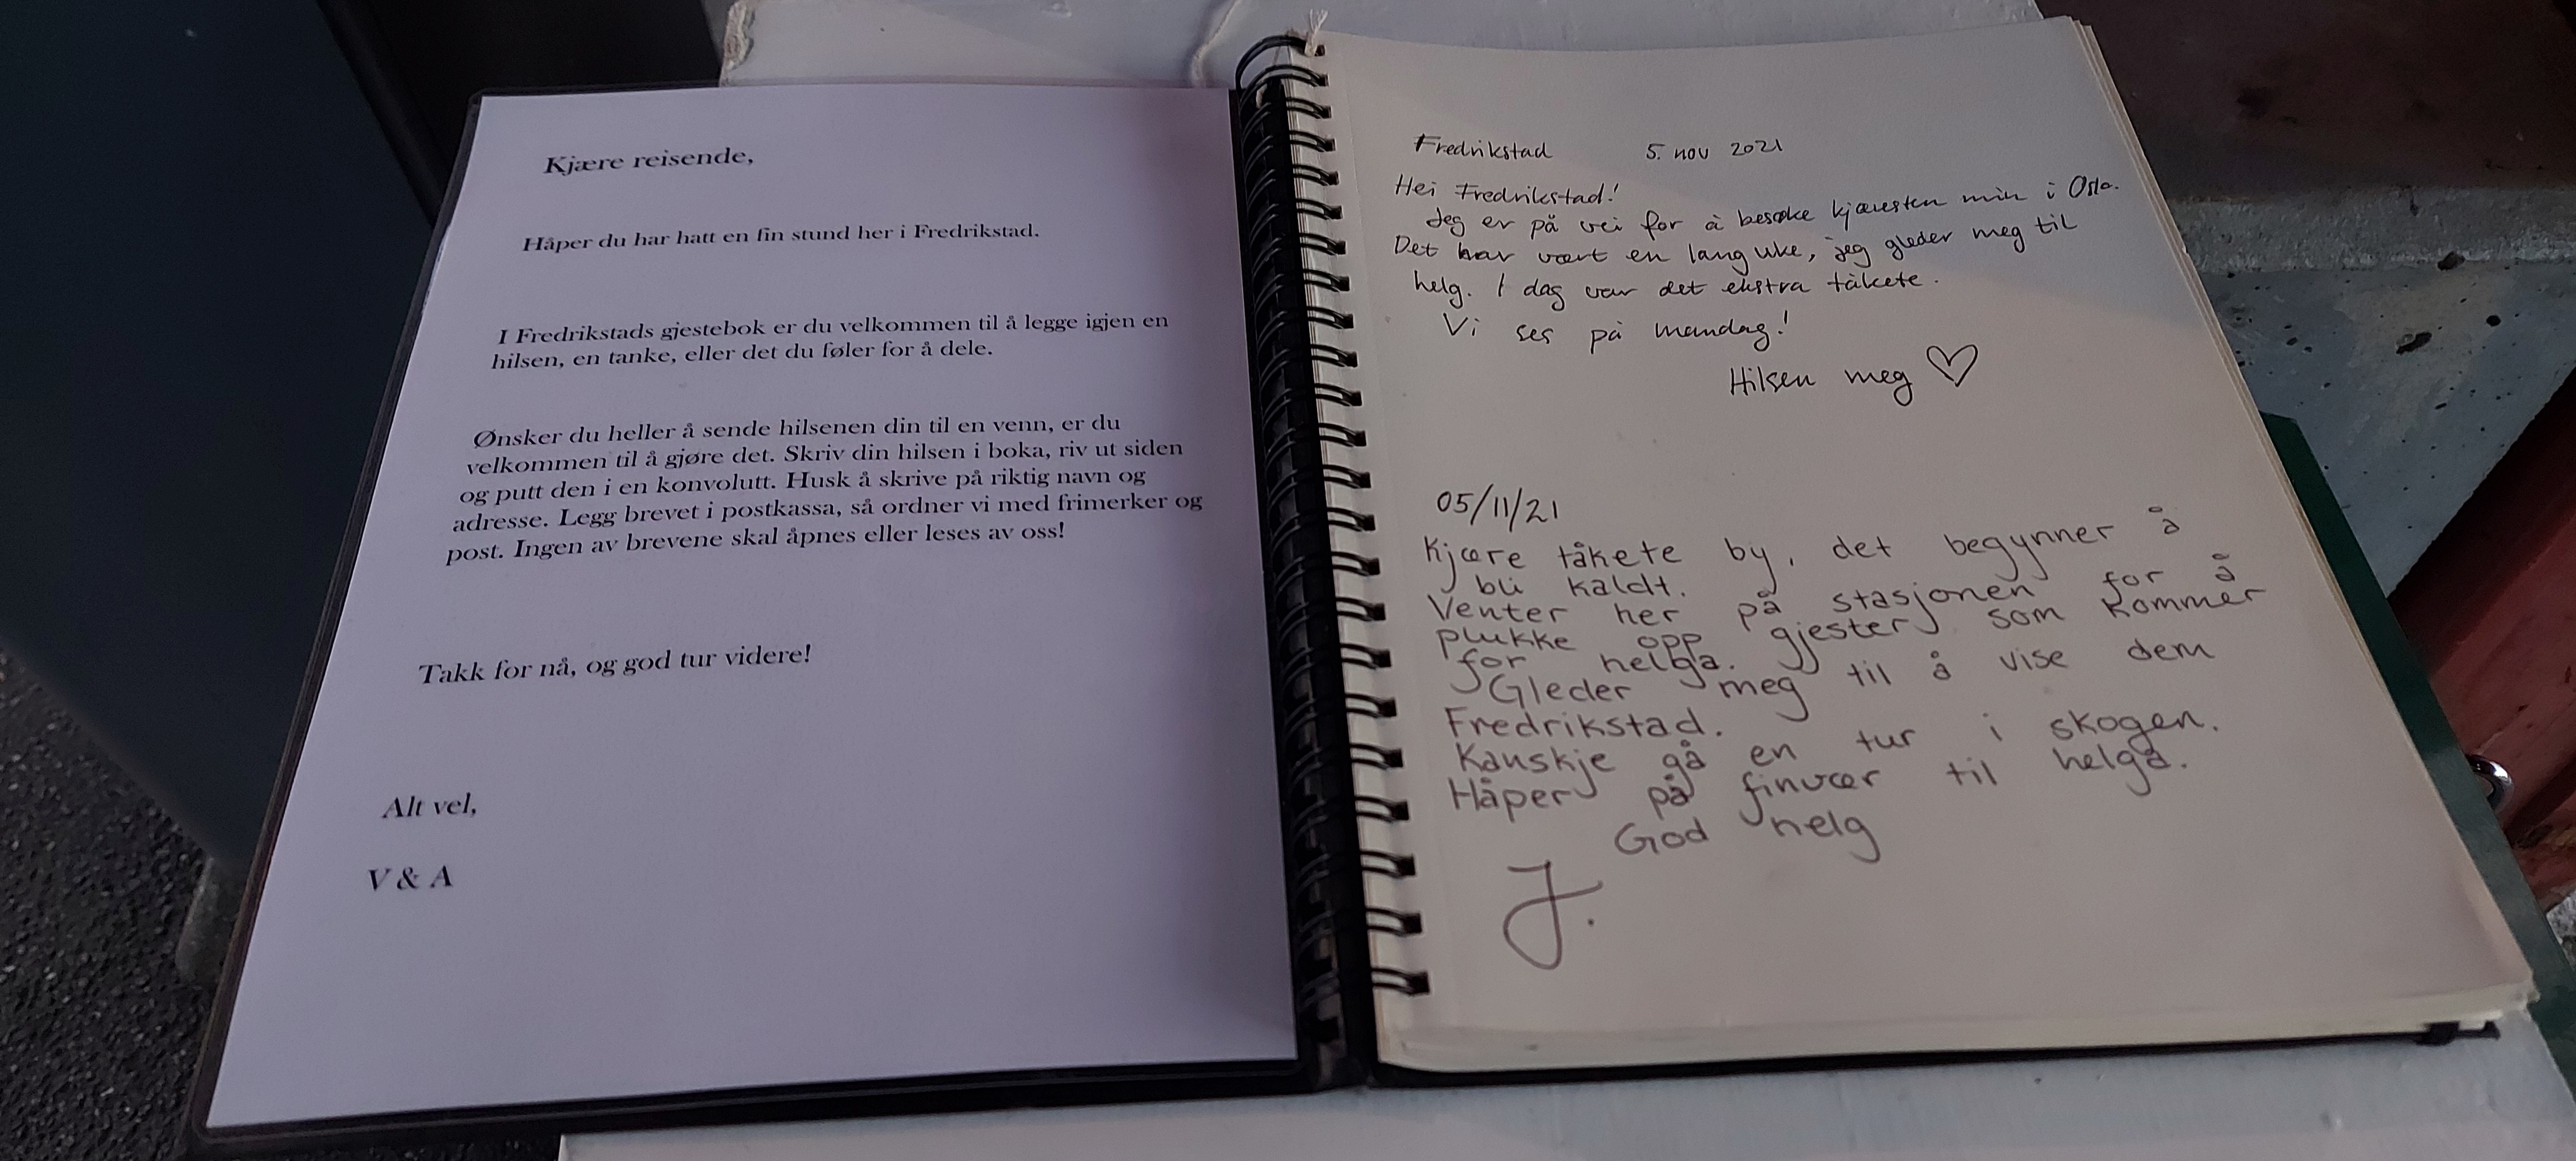 Kjære reisende,
Håper du har hatt en fin stund her i Fredrikstad.
I Fredrikstads gjestebok er du velkommen til å legge igjen en
hilsen, en tanke, eller det du føler for å dele.
Ønsker du heller å sende hilsenen din til en venn, er du
velkommen til å gjøre det. Skriv din hilsen i boka, riv ut siden
og putt den i en konvolutt. Husk å skrive på riktig navn og
adresse. Legg brevet i postkassa, så ordner vi med frimerker og
post. Ingen av brevene skal åpnes eller leses av oss!
Takk for nå, og god tur videre!
Alt vel,
V & A
Fredrikstad 5. nov 2021
Hei Fredrikstad!
Jeg er på vei for å besøke kjæresten min i Oslo.
Det har vært en lang uke, jeg gleder meg til
helg. I dag var det ekstra tåkete.
Vi ses på mandag!
Hilsen meg ♡
05/11/21
Kjære tåkete by, det begynner å
bli kaldt.
Venter her på stasjonen for å
plukke opp gjester som kommer
for helga.
Gleder meg til å vise dem
Fredrikstad.
Kanskje gå en tur i skogen.
Håper på finvær til helga.
God helg
J.